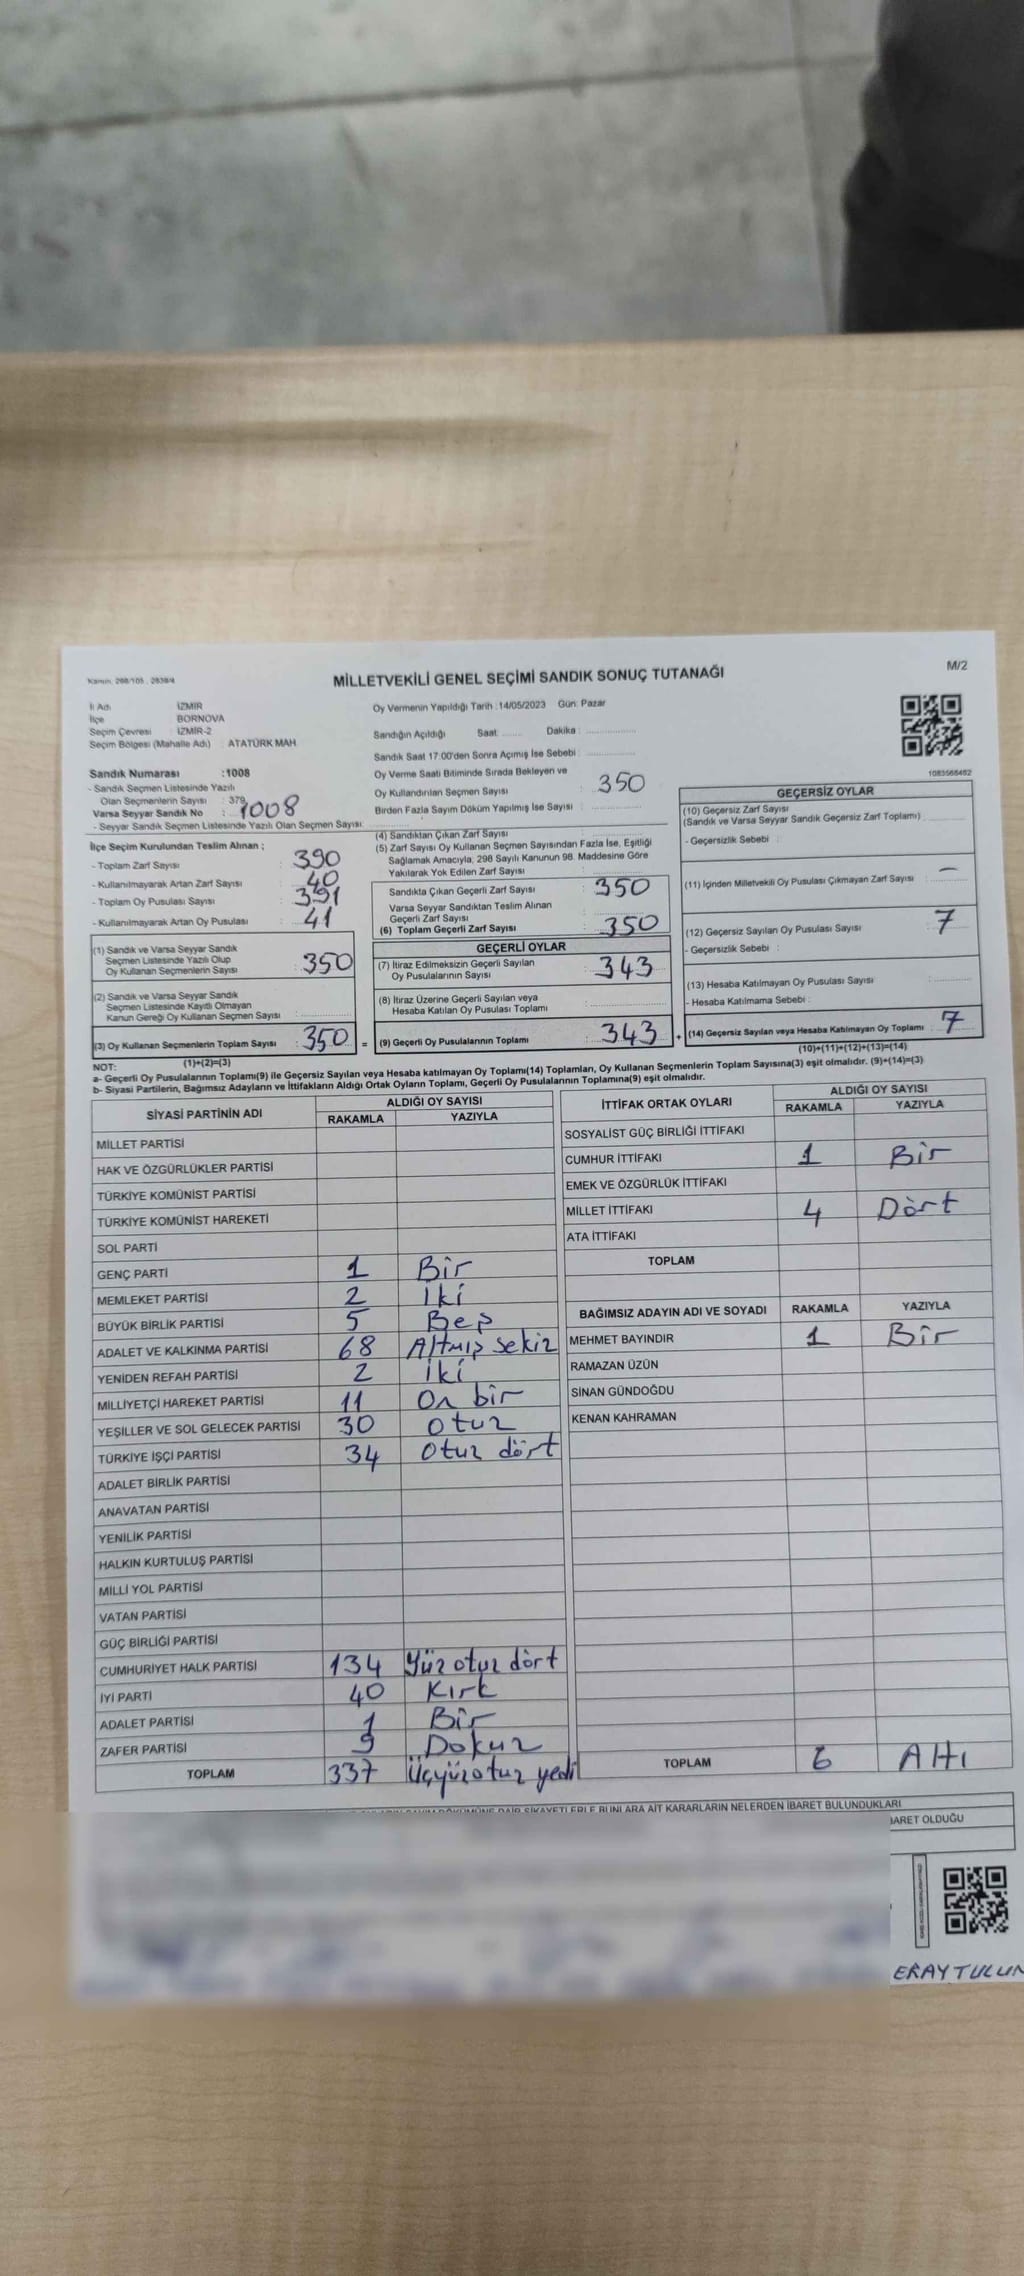 Kanun. 298/105 , 2839/4
MİLLETVEKİLİ GENEL SEÇİMİ SANDIK SONUÇ TUTANAĞI
M/2
İl Adı : İZMİR
İlçe : BORNOVA
Seçim Çevresi : İZMİR-2
Seçim Bölgesi (Mahalle Adı) : ATATÜRK MAH
Sandık Numarası :1008
- Sandık Seçmen Listesinde Yazılı
Olan Seçmenlerin Sayısı : 379
Varsa Seyyar Sandık No : 1008
- Seyyar Sandık Seçmen Listesinde Yazılı Olan Seçmen Sayısı:
İlçe Seçim Kurulundan Teslim Alınan ;
- Toplam Zarf Sayısı : 390
- Kullanılmayarak Artan Zarf Sayısı : 40
- Toplam Oy Pusulası Sayısı : 391
- Kullanılmayarak Artan Oy Pusulası : 41
(1) Sandık ve Varsa Seyyar Sandık
Seçmen Listesinde Yazılı Olup
Oy Kullanan Seçmenlerin Sayısı : 350
(2) Sandık ve Varsa Seyyar Sandık
Seçmen Listesinde Kayıtlı Olmayan
Kanun Gereği Oy Kullanan Seçmen Sayısı :
(3) Oy Kullanan Seçmenlerin Toplam Sayısı : 350 =
(1)+(2)=(3)
Oy Vermenin Yapıldığı Tarih :14/05/2023 Gün: Pazar
Sandığın Açıldığı Saat: Dakika :
Sandık Saat 17:00'den Sonra Açımış İse Sebebi :
Oy Verme Saati Bitiminde Sırada Bekleyen ve
Oy Kullandırılan Seçmen Sayısı : 350
Birden Fazla Sayım Döküm Yapılmış İse Sayısı :
(4) Sandıktan Çıkan Zarf Sayısı :
(5) Zarf Sayısı Oy Kullanan Seçmen Sayısından Fazla İse, Eşitliği
Sağlamak Amacıyla, 298 Sayılı Kanunun 98. Maddesine Göre
Yakılarak Yok Edilen Zarf Sayısı :
Sandıkta Çıkan Geçerli Zarf Sayısı : 350
Varsa Seyyar Sandıktan Teslim Alınan
Geçerli Zarf Sayısı :
(6) Toplam Geçerli Zarf Sayısı : 350
GEÇERLİ OYLAR
(7) İtiraz Edilmeksizin Geçerli Sayılan
Oy Pusulalarının Sayısı : 343
(8) İtiraz Üzerine Geçerli Sayılan veya
Hesaba Katılan Oy Pusulası Toplamı :
(9) Geçerli Oy Pusulalarının Toplamı : 343 +
1083568462
GEÇERSİZ OYLAR
(10) Geçersiz Zarf Sayısı
(Sandık ve Varsa Seyyar Sandık Geçersiz Zarf Toplamı) :
- Geçersizlik Sebebi :
(11) İçinden Milletvekili Oy Pusulası Çıkmayan Zarf Sayısı : —
(12) Geçersiz Sayılan Oy Pusulası Sayısı : 7
- Geçersizlik Sebebi :
(13) Hesaba Katılmayan Oy Pusulası Sayısı :
- Hesaba Katılmama Sebebi :
(14) Geçersiz Sayılan veya Hesaba Katılmayan Oy Toplamı : 7
(10)+(11)+(12)+(13)=(14)
NOT:
a- Geçerli Oy Pusulalarının Toplamı(9) ile Geçersiz Sayılan veya Hesaba katılmayan Oy Toplamı(14) Toplamları, Oy Kullanan Seçmenlerin Toplam Sayısına(3) eşit olmalıdır. (9)+(14)=(3)
b- Siyasi Partilerin, Bağımsız Adayların ve İttifakların Aldığı Ortak Oyların Toplamı, Geçerli Oy Pusulalarının Toplamına(9) eşit olmalıdır.
SİYASİ PARTİNİN ADI ALDIĞI OY SAYISI
RAKAMLA YAZIYLA
MİLLET PARTİSİ
HAK VE ÖZGÜRLÜKLER PARTİSİ
TÜRKİYE KOMÜNİST PARTİSİ
TÜRKİYE KOMÜNİST HAREKETİ
SOL PARTİ
GENÇ PARTİ 1 Bir
MEMLEKET PARTİSİ 2 İki
BÜYÜK BİRLİK PARTİSİ 5 Beş
ADALET VE KALKINMA PARTİSİ 68 Altmış sekiz
YENİDEN REFAH PARTİSİ 2 İki
MİLLİYETÇİ HAREKET PARTİSİ 11 On bir
YEŞİLLER VE SOL GELECEK PARTİSİ 30 Otuz
TÜRKİYE İŞÇİ PARTİSİ 34 Otuz dört
ADALET BİRLİK PARTİSİ
ANAVATAN PARTİSİ
YENİLİK PARTİSİ
HALKIN KURTULUŞ PARTİSİ
MİLLİ YOL PARTİSİ
VATAN PARTİSİ
GÜÇ BİRLİĞİ PARTİSİ
CUMHURİYET HALK PARTİSİ 134 Yüz otuz dört
İYİ PARTİ 40 Kırk
ADALET PARTİSİ 1 Bir
ZAFER PARTİSİ 9 Dokuz
TOPLAM 337 Üçyüzotuz yedi
İTTİFAK ORTAK OYLARI ALDIĞI OY SAYISI
RAKAMLA YAZIYLA
SOSYALİST GÜÇ BİRLİĞİ İTTİFAKI
CUMHUR İTTİFAKI 1 Bir
EMEK VE ÖZGÜRLÜK İTTİFAKI
MİLLET İTTİFAKI 4 Dört
ATA İTTİFAKI
TOPLAM
BAĞIMSIZ ADAYIN ADI VE SOYADI RAKAMLA YAZIYLA
MEHMET BAYINDIR 1 Bir
RAMAZAN ÜZÜN
SİNAN GÜNDOĞDU
KENAN KAHRAMAN
TOPLAM 6 Altı
ŞİKAYETLERLE BUNLARA AİT KARARLARIN NELERDEN İBARET BULUNDUKLARI
BARET OLDUĞU
ERAY TULUN